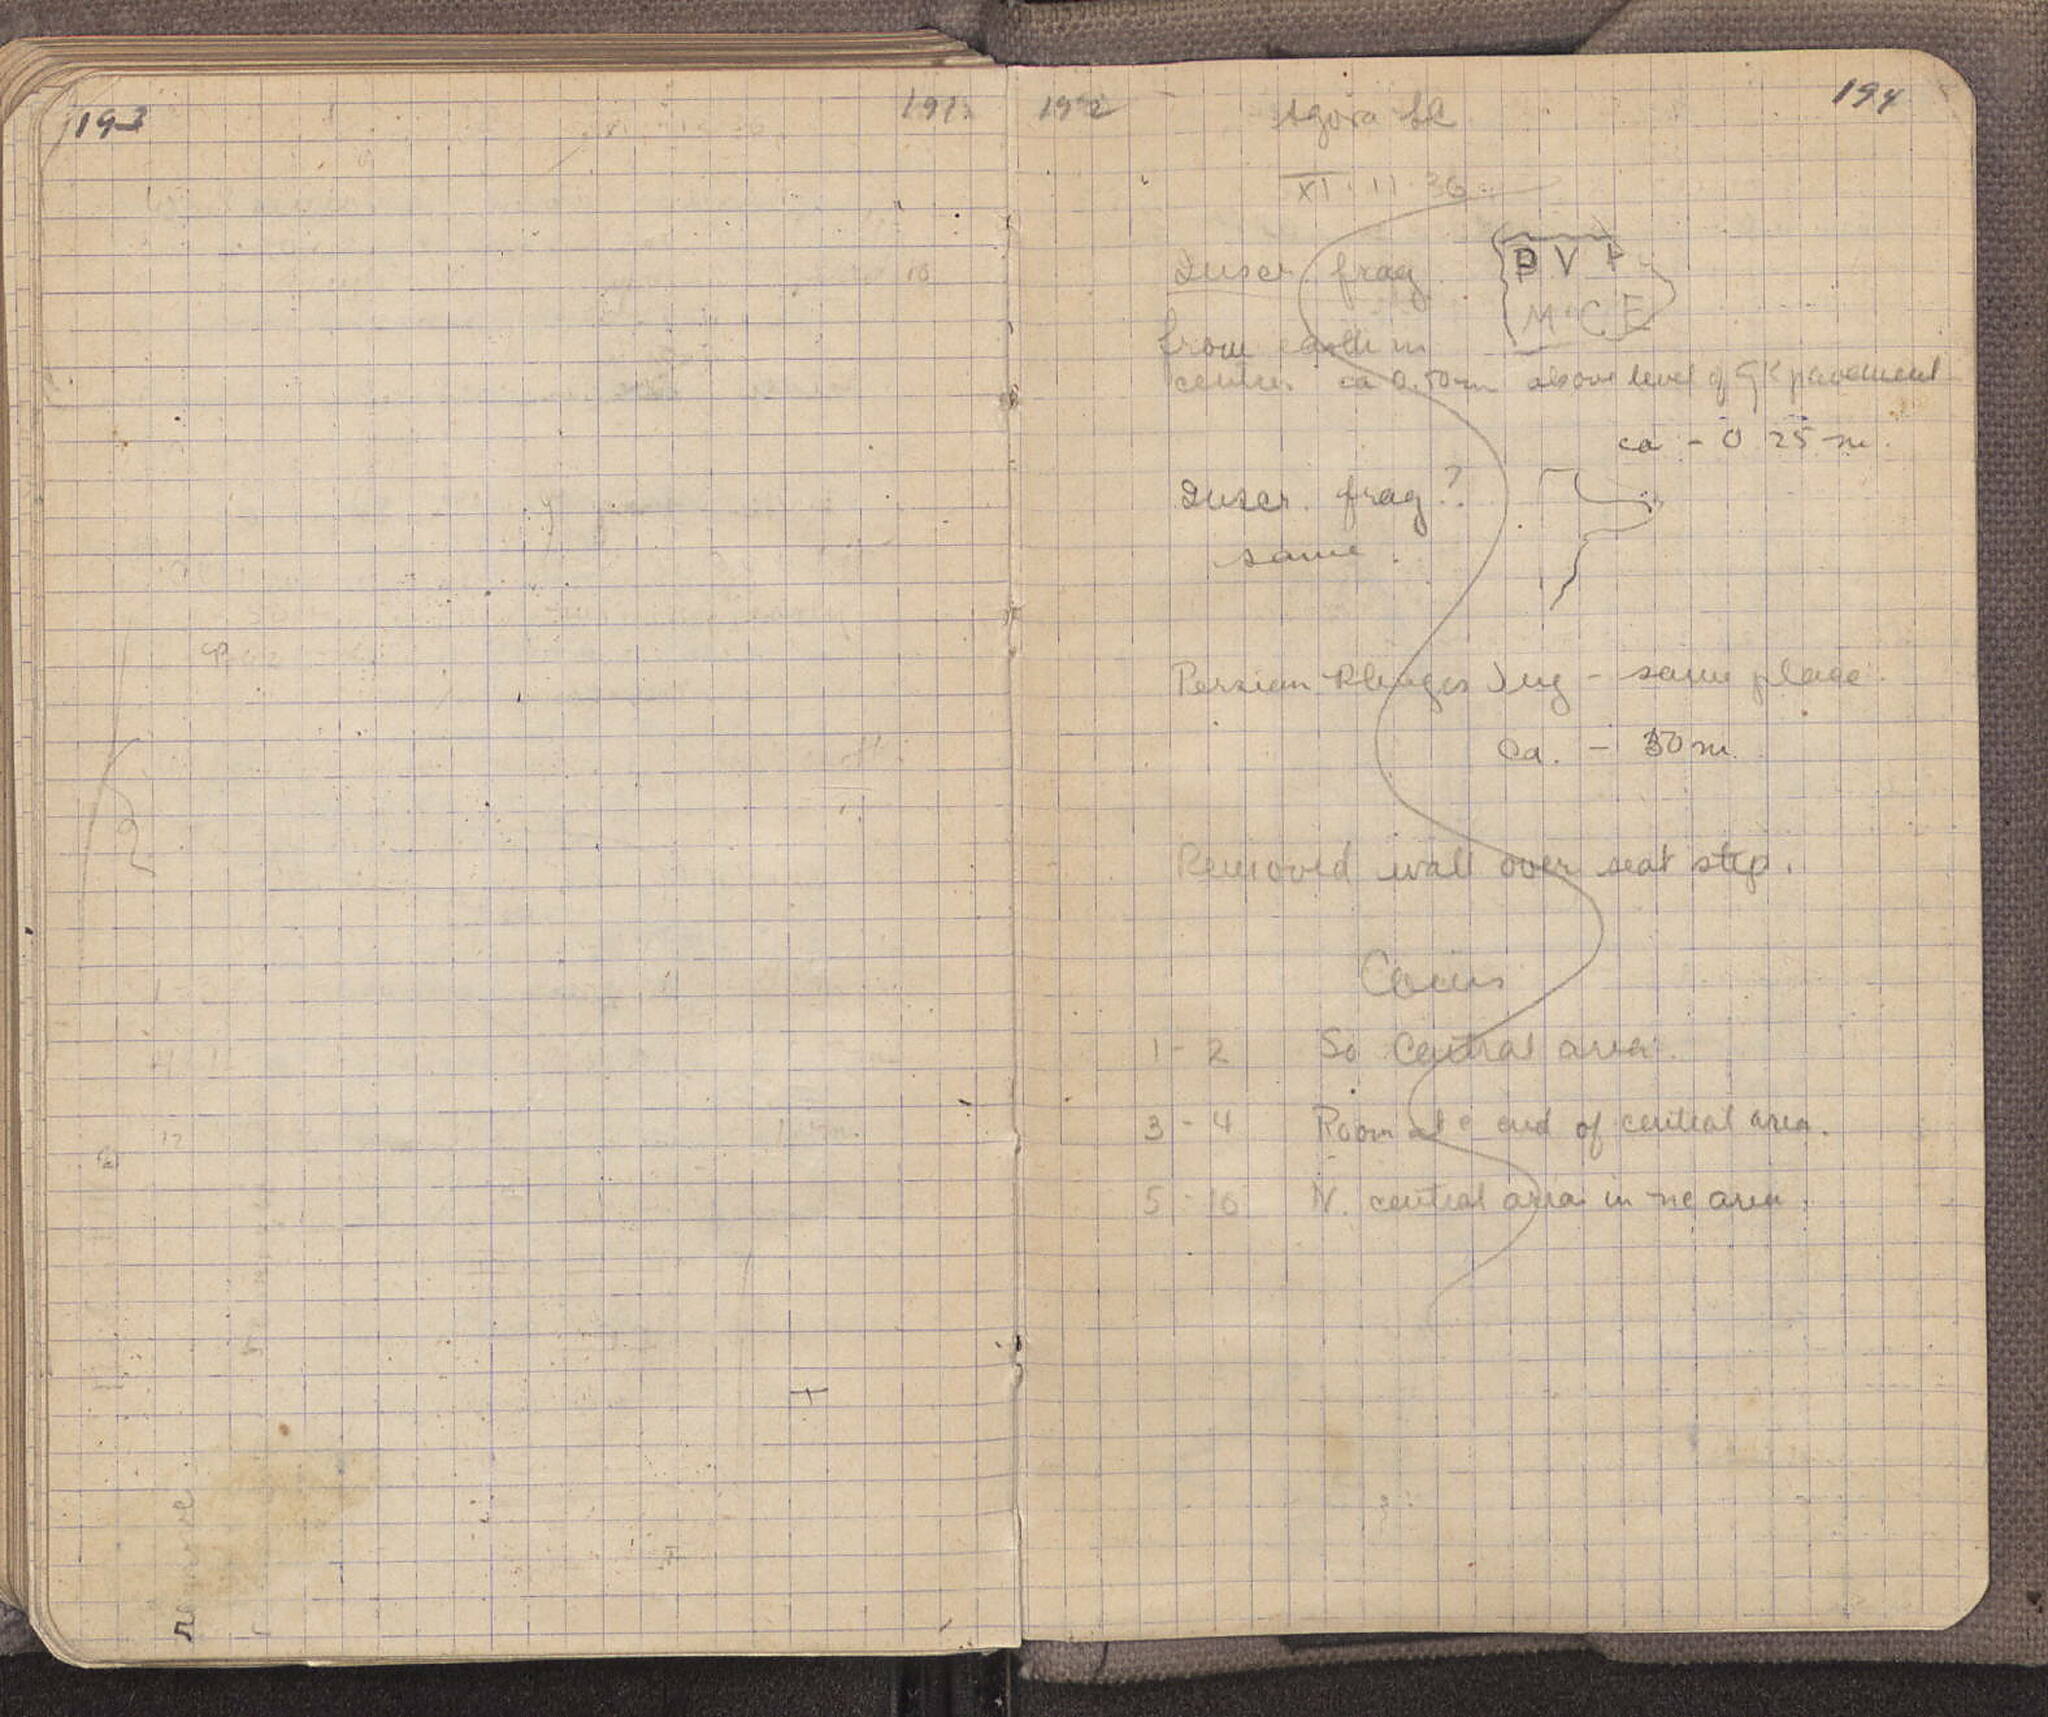 193
191
192
194
Agora
XI · 11 · 36
Inscr. frag
PV
M C E
from earth in
center ca 0.50m above level of GK pavement
ca - 0 25 m.
Inscr. frag?
same.
Persian jug - same place.
ca. - 30 m.
Removed wall over seat step.
Coins
1 - 2 So Central area.
3 - 4 Room at e end of central area.
5 - 10 N. central area in ne area.